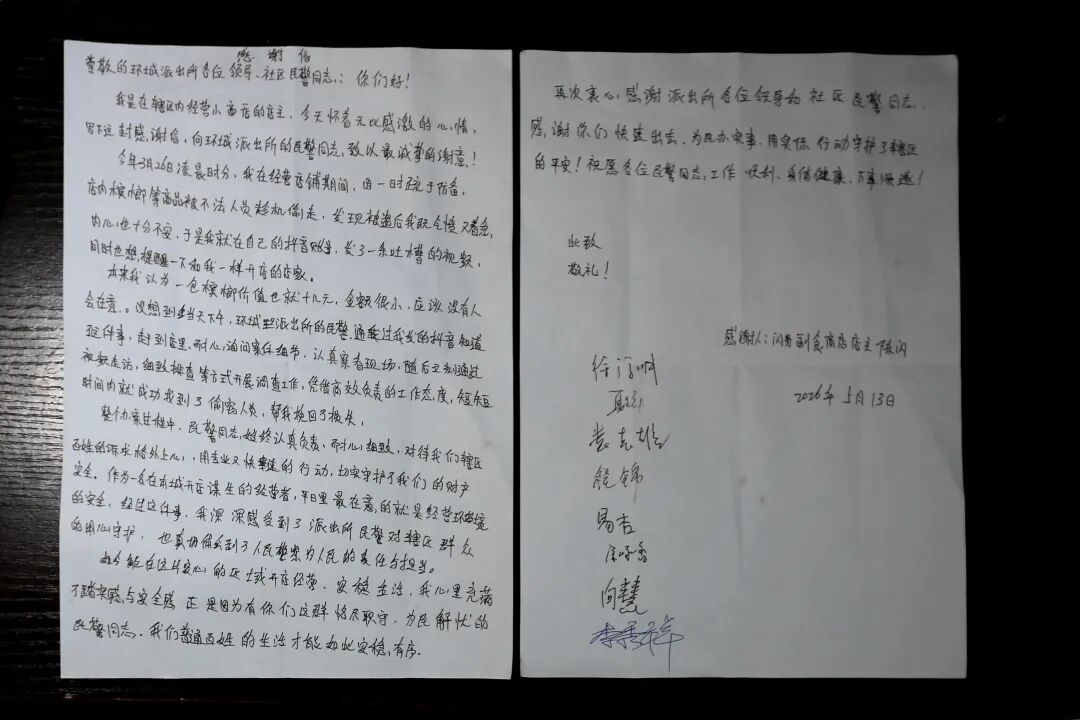 感谢信
尊敬的环城派出所各位领导、社区民警同志:你们好!
我是在辖区内经营小商店的店主,今天怀着无比感激的心情,
写下这封感谢信,向环城派出所的民警同志,致以最诚挚的谢意!
今年3月26日凌晨时分,我在经营店铺期间,因一时疏于防备,
店内槟榔等商品被不法人员趁机偷走,发现被盗后我既气愤又着急,
内心也十分不安,于是我就在自己的抖音账号,发了一条吐槽的视频,
同时也想提醒一下和我一样开店的店家。
本来我认为一包槟榔价值也就十几元,金额很小、应该没有人
会在意。没想到当天下午,环城派出所的民警通过我发的抖音知道
这件事,赶到店里,耐心询问案件细节,认真察看现场,随后立刻通过
视频走访,细致排查等方式开展调查工作,凭借高效负责的工作态度,短短
时间内就成功找到了偷窃人员,帮我挽回了损失。
整个办案过程中,民警同志始终认真负责、耐心细致,对待我们辖区
百姓的诉求格外上心,用专业又快速的行动,切实守护了我们的财产
安全。作为一名在本城开店谋生的经营者,平日里最在意的就是经营环境
的安全,经过这件事,我深深感受到了派出所民警对辖区群众
的用心守护,也真切体会到了人民警察为人民的责任与担当。
如今能在这片安心的区域开店经营、安稳生活,我心里充满
了踏实感与安全感 正是因为有你们这群恪尽职守、为民解忧的
民警同志,我们普通百姓的生活才能如此安稳,有序.
再次衷心感谢派出所各位领导和社区民警同志,
感谢你们快速出击、为民办实事,用实际行动守护了辖区
的平安!祝愿各位民警同志,工作顺利、身体健康、万事顺遂!
此致
敬礼!
感谢人:闪哥副食商店店主 陈闪
2026年5月13日
舒锦
易杏
向慧
李秀祥